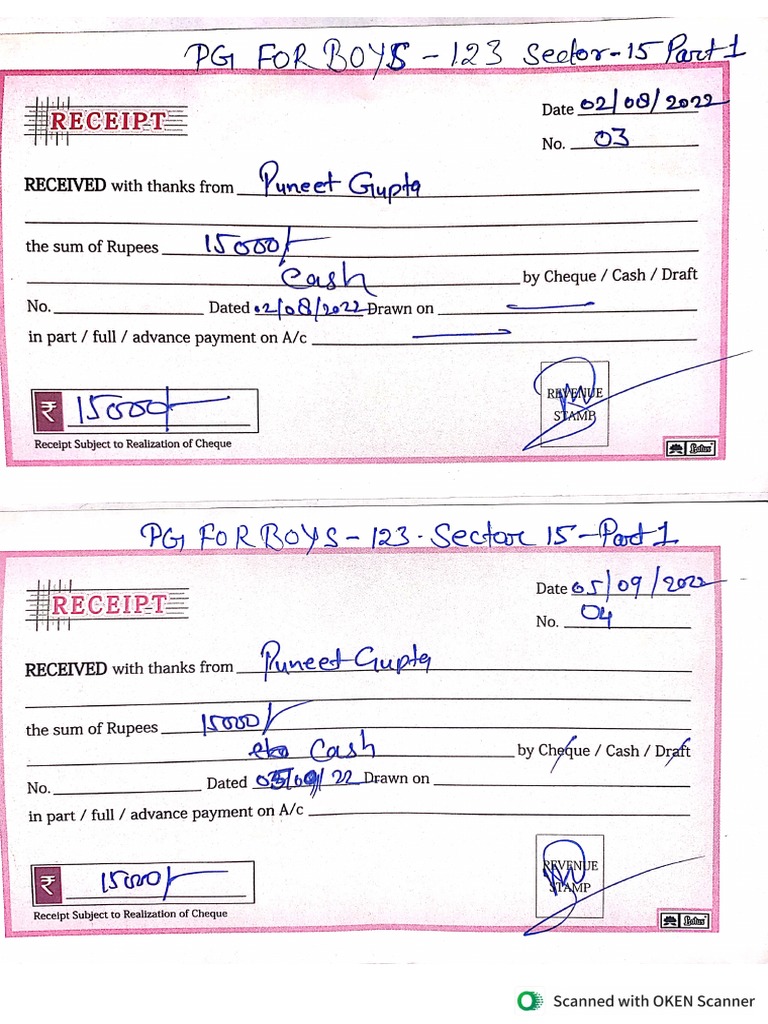 PG FOR BOYS - 123 Sector-15 Part 1
RECEIPT
Date 02/08/2022
No. 03
RECEIVED with thanks from Puneet Gupta
the sum of Rupees 15000/-
Cash by Cheque / Cash / Draft
No. Dated 02/08/2022 Drawn on —
in part / full / advance payment on A/c —
₹ 15000/-
REVENUE
STAMP
Receipt Subject to Realization of Cheque
Lotus
PG FOR BOYS - 123. Sector 15 - Part 1
RECEIPT
Date 05/09/2022
No. 04
RECEIVED with thanks from Puneet Gupta
the sum of Rupees 15000/-
Cash by Cheque / Cash / Draft
No. Dated 05/09/22 Drawn on
in part / full / advance payment on A/c
₹ 15000/-
REVENUE
STAMP
Receipt Subject to Realization of Cheque
Lotus
Scanned with OKEN Scanner